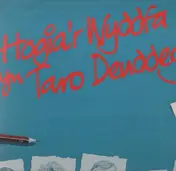 Hogia'r Wyddfa
yn Taro Deuddeg